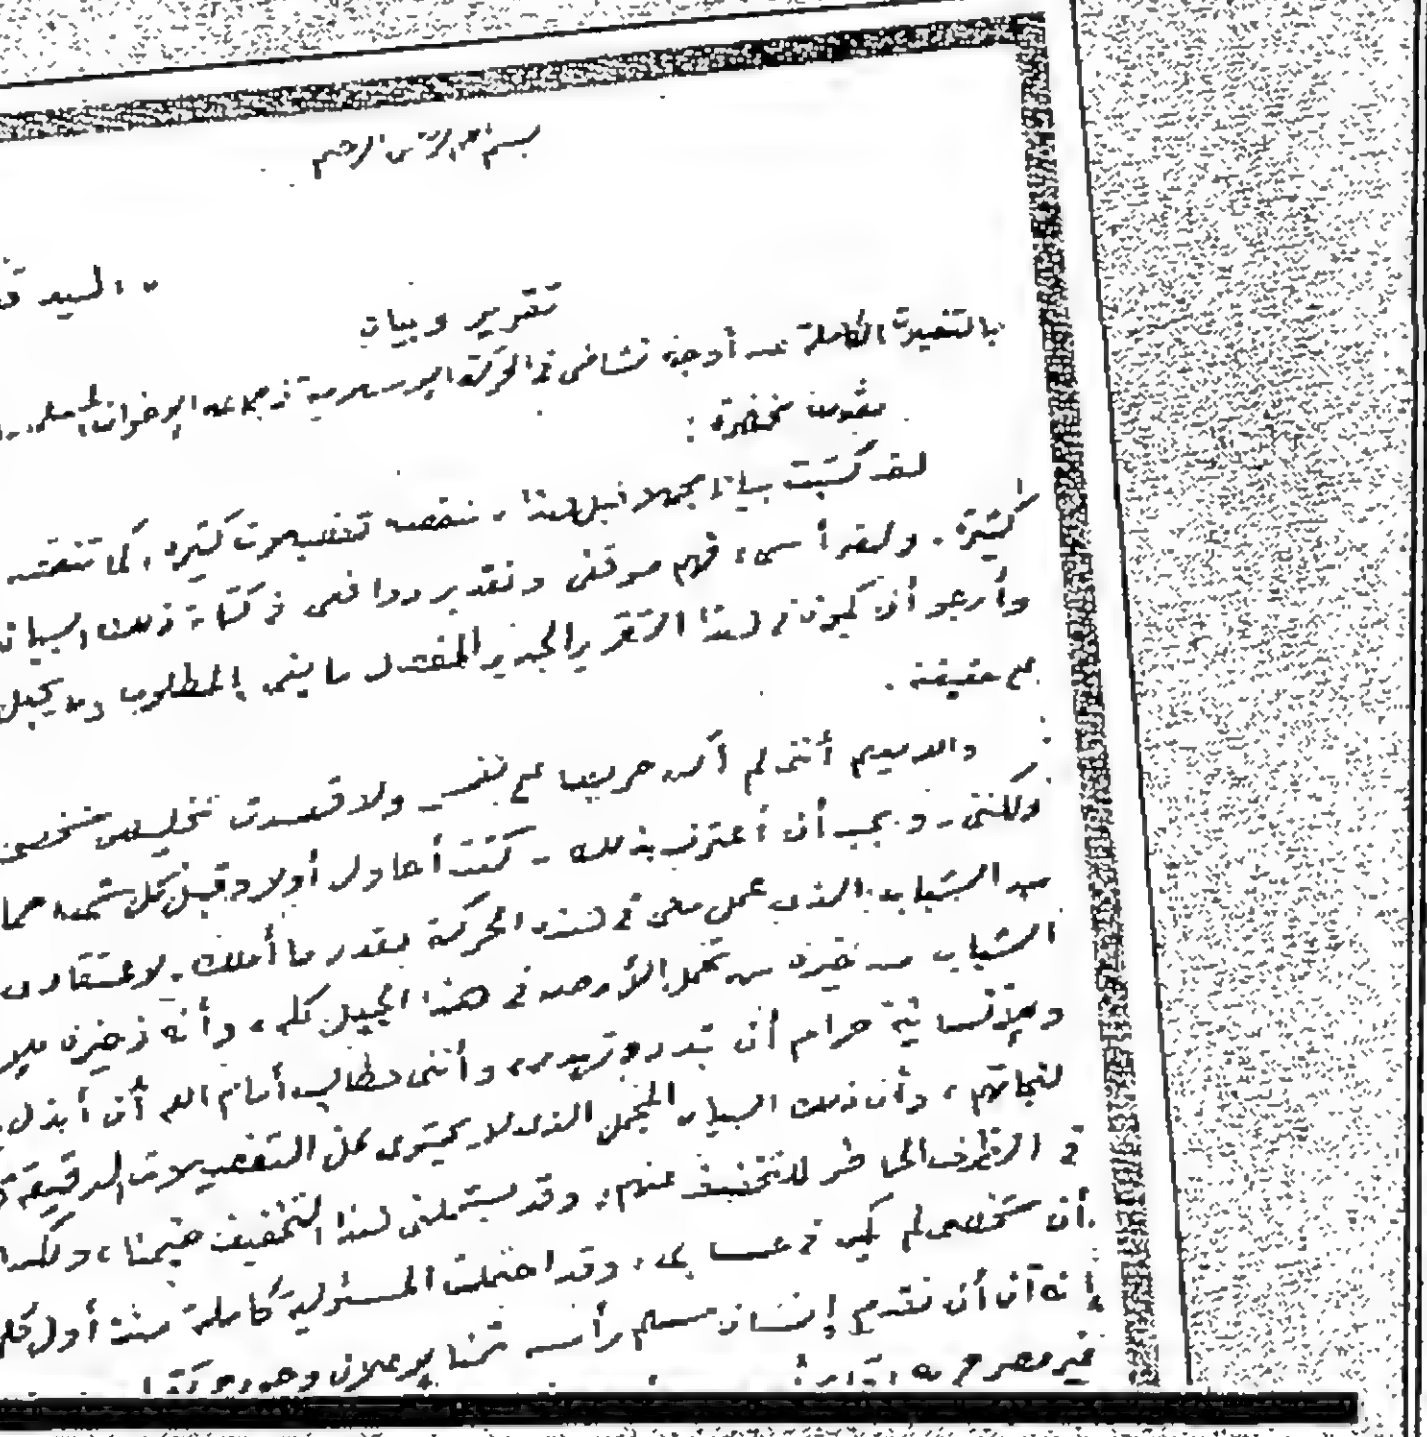 بسم الله الرحمن الرحيم
السيد
تقرير وبيان
بالتفصيلات الكاملة عن أوجه نشاطى فى الحركة الإسلامية فى جماعة الإخوان المسلمين
بصورة مختصرة :
لقد كتبت بيانا مجملا قبل هذا ، تنقصه تفصيلات كثيرة ، كما تنقصه
كثيرة . ولقد أسىء فهم موقفى وتقدير دوافعى فى كتابة ذلك البيان
وأرجو أن يكون فى هذا التقرير الجديد المفصل ما يفى بالمطلوب
على حقيقته .
والله يعلم أننى لم أكن حريصا على نفسى ولا قصدت تخليص شخصى
ولكننى - ويجب أن أعترف بذلك - كنت أحاول أولا وقبل كل شىء حماية
الشباب الذى عمل معى فى هذه الحركة بقدر ما أملك . لاعتقادى
الشباب من خيرة من تحمل الأرض فى هذا الجيل كله ، وأنه ذخيرة
حرام أن تبدد وأننى مطالب أمام الله أن أبذل
لنجاتهم ، وأن ذلك البيان المجمل الذى لا يحتوى كل التفصيلات الدقيقة
الظرف الحاضر للتخفيف عنهم . وقد يشملنى هذا التخفيف ضمنا ، ولكن
أن شخصى لم يكن فى حسابى ، وقد احتملت المسئولية كاملة منذ أول
إنه آن أن يقدم إنسان مسلم رأسه ثمنا لإعلان وجود حركة
غير مصرح